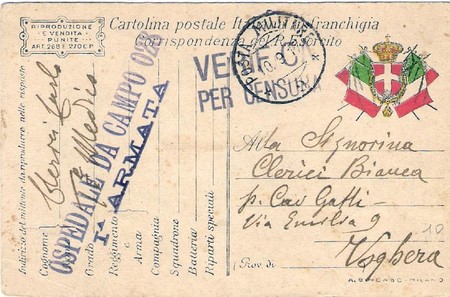 RIPRODUZIONE
E VENDITA
PUNITE
ART. 268 E 270 C.P.
Cartolina postale Italiana in franchigia
Corrispondenza del R. Esercito
POSTA MILITARE
VERIF
PER CENSURA
OSPEDALE DA CAMPO
1ª ARMATA
Indirizzo del mittente da riprodurre nelle risposte
Cognome
Carlo
Nome
Grado
Medico
Reggimento
e
Arma
Compagnia
Squadrone
Batteria
Riparti speciali
Alla Signorina
Clerici Bianca
p. Cav Gatti
Via Emilia 9
10
Voghera
Prov. di
MILANO